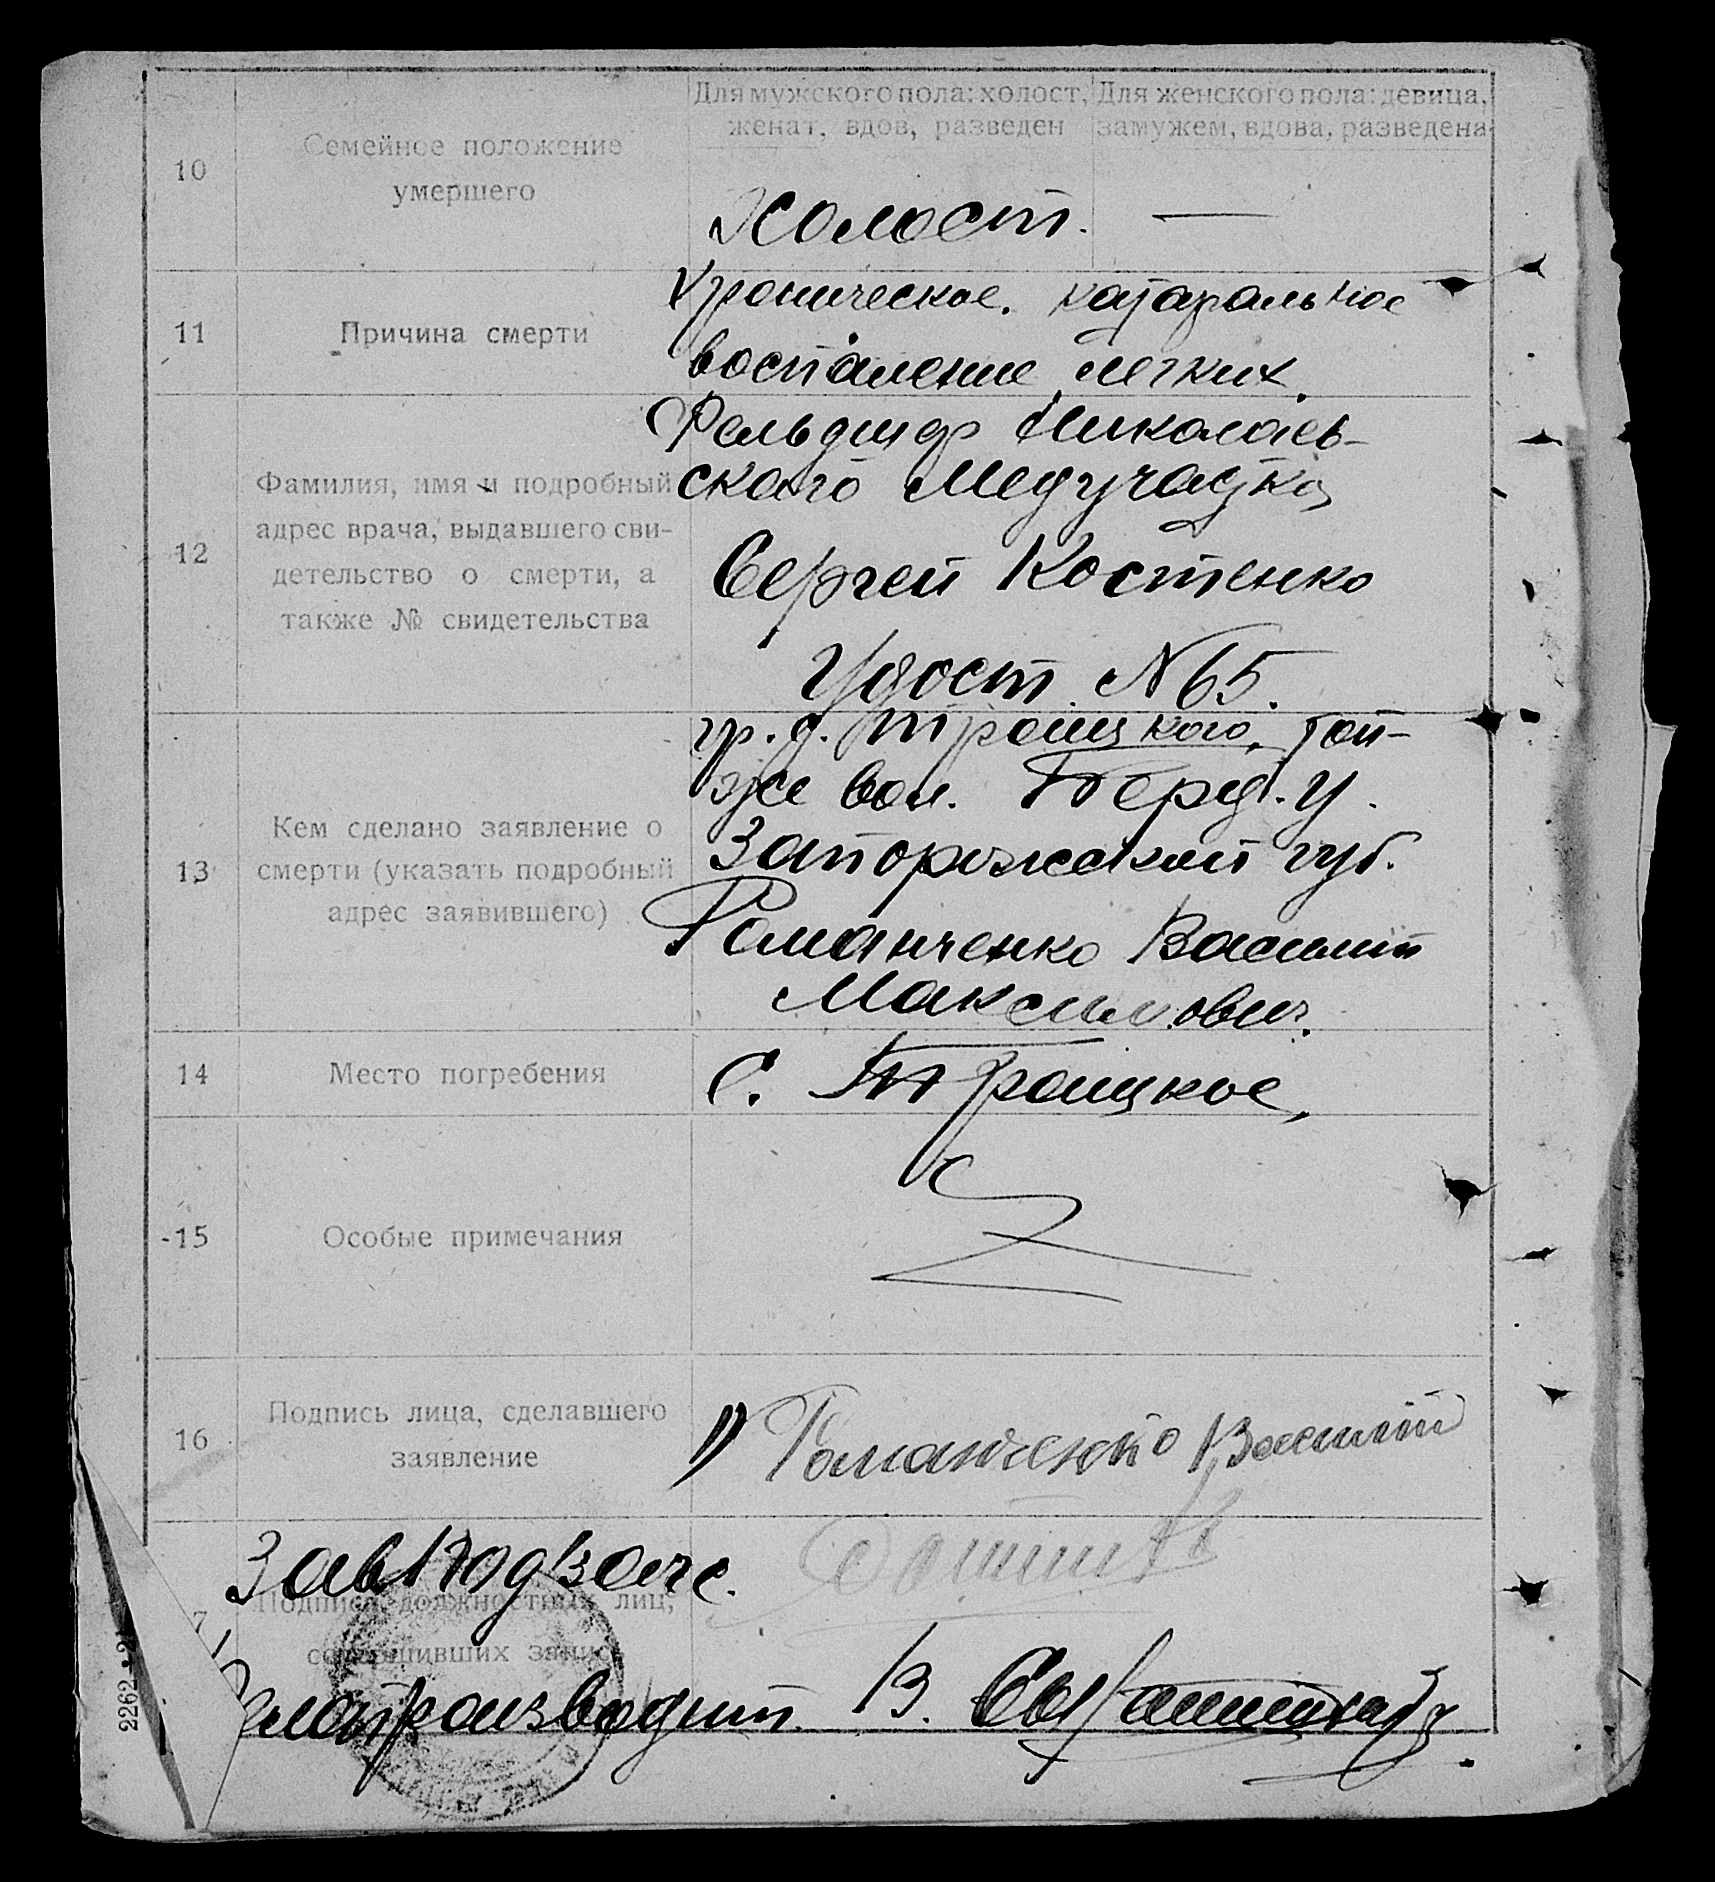 Для мужского пола: холост, женат, вдов, разведен
Для женского пола: девица, замужем, вдова, разведена
10
Семейное положение
умершего
Холост. —
11
Причина смерти
Хроническое. катаральное
воспаление легких.
12
Фамилия, имя и подробный
адрес врача, выдавшего сви-
детельство о смерти, а
также № свидетельства
Фельдшер Николаев-
ского Медучастка
Сергей Костенко
Удост. № 65.
13
Кем сделано заявление о
смерти (указать подробный
адрес заявившего)
гр. с. Троицкого, той-
же вол. Берд. у.
Запорожской губ.
Романченко Василий
Максимович.
14
Место погребения
С. Троицкое,
-15
Особые примечания
16
Подпись лица, сделавшего
заявление
1) Романченко Василий
ЗавПодЗагс.
7
Подписи должностных лиц,
совершивших запись
Делопроизводит. В.
2262-2